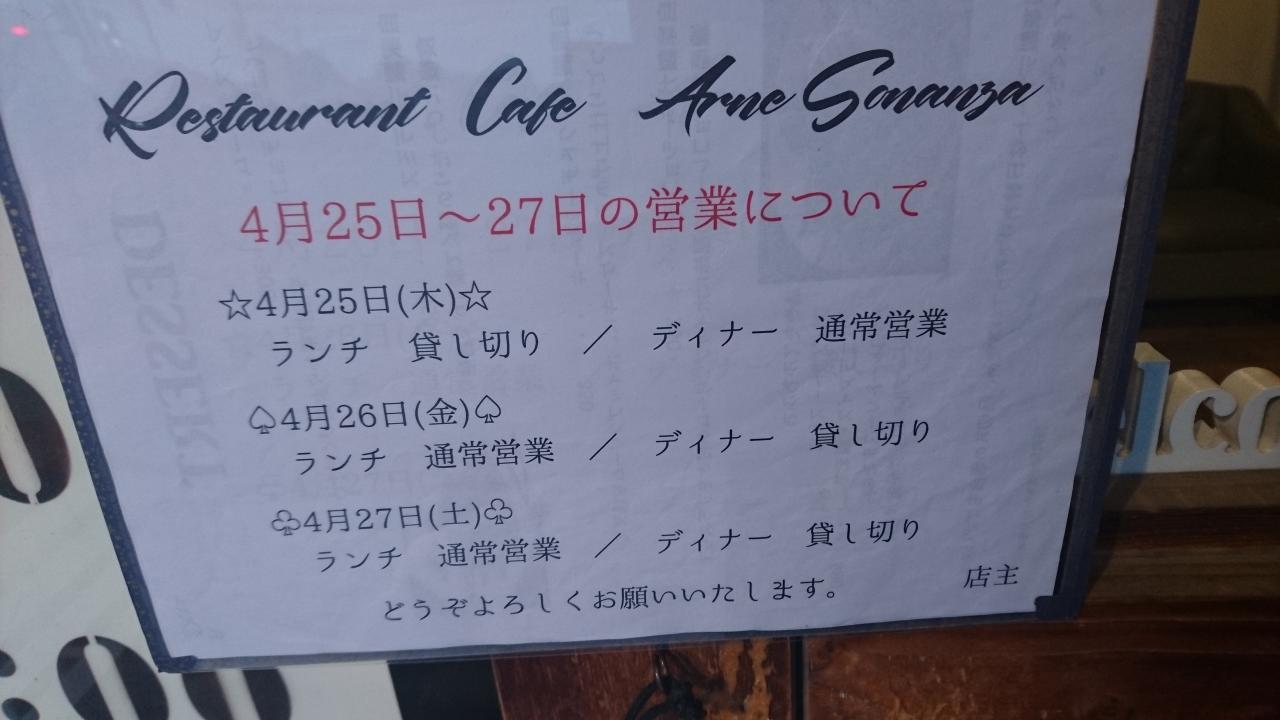 Restaurant Cafe Arne Sonanza
4月25日～27日の営業について
☆4月25日(木)☆
ランチ 貸し切り ／ ディナー 通常営業
♤4月26日(金)♤
ランチ 通常営業 ／ ディナー 貸し切り
♧4月27日(土)♧
ランチ 通常営業 ／ ディナー 貸し切り
どうぞよろしくお願いいたします。
店主
DESSERT